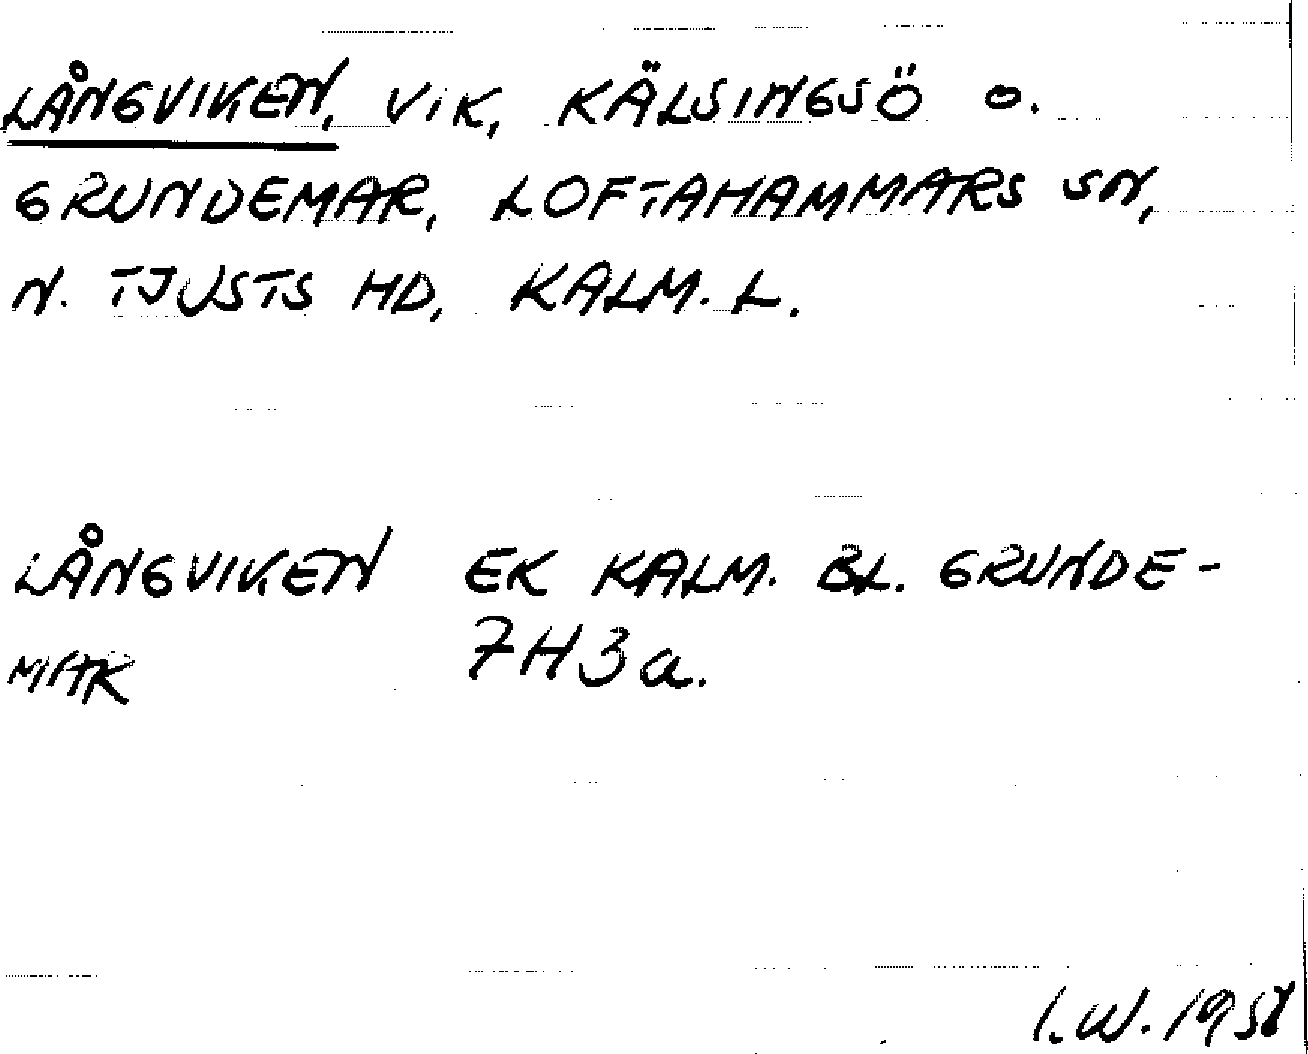 LÅNGVIKEN, VIK, KÄLSINGSÖ O.
GRUNDEMAR, LOFTAHAMMARS SN,
N. TJUSTS HD, KALM. L.
LÅNGVIKEN EK KALM. BL. GRUNDE-
MAR 7H3a.
I.W. 1958